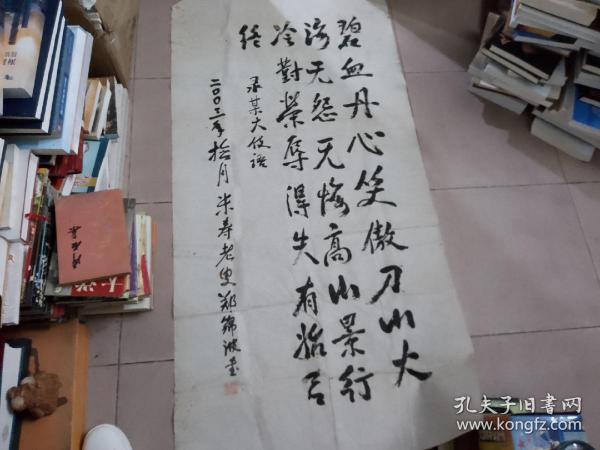 碧血丹心笑傲刀山火
海无怨无悔高山景行
冷對榮辱得失有始有
终
录某大侠语
二00三年拾月米寿老叟郑锦波书
孔夫子旧书网
www.kongfz.com